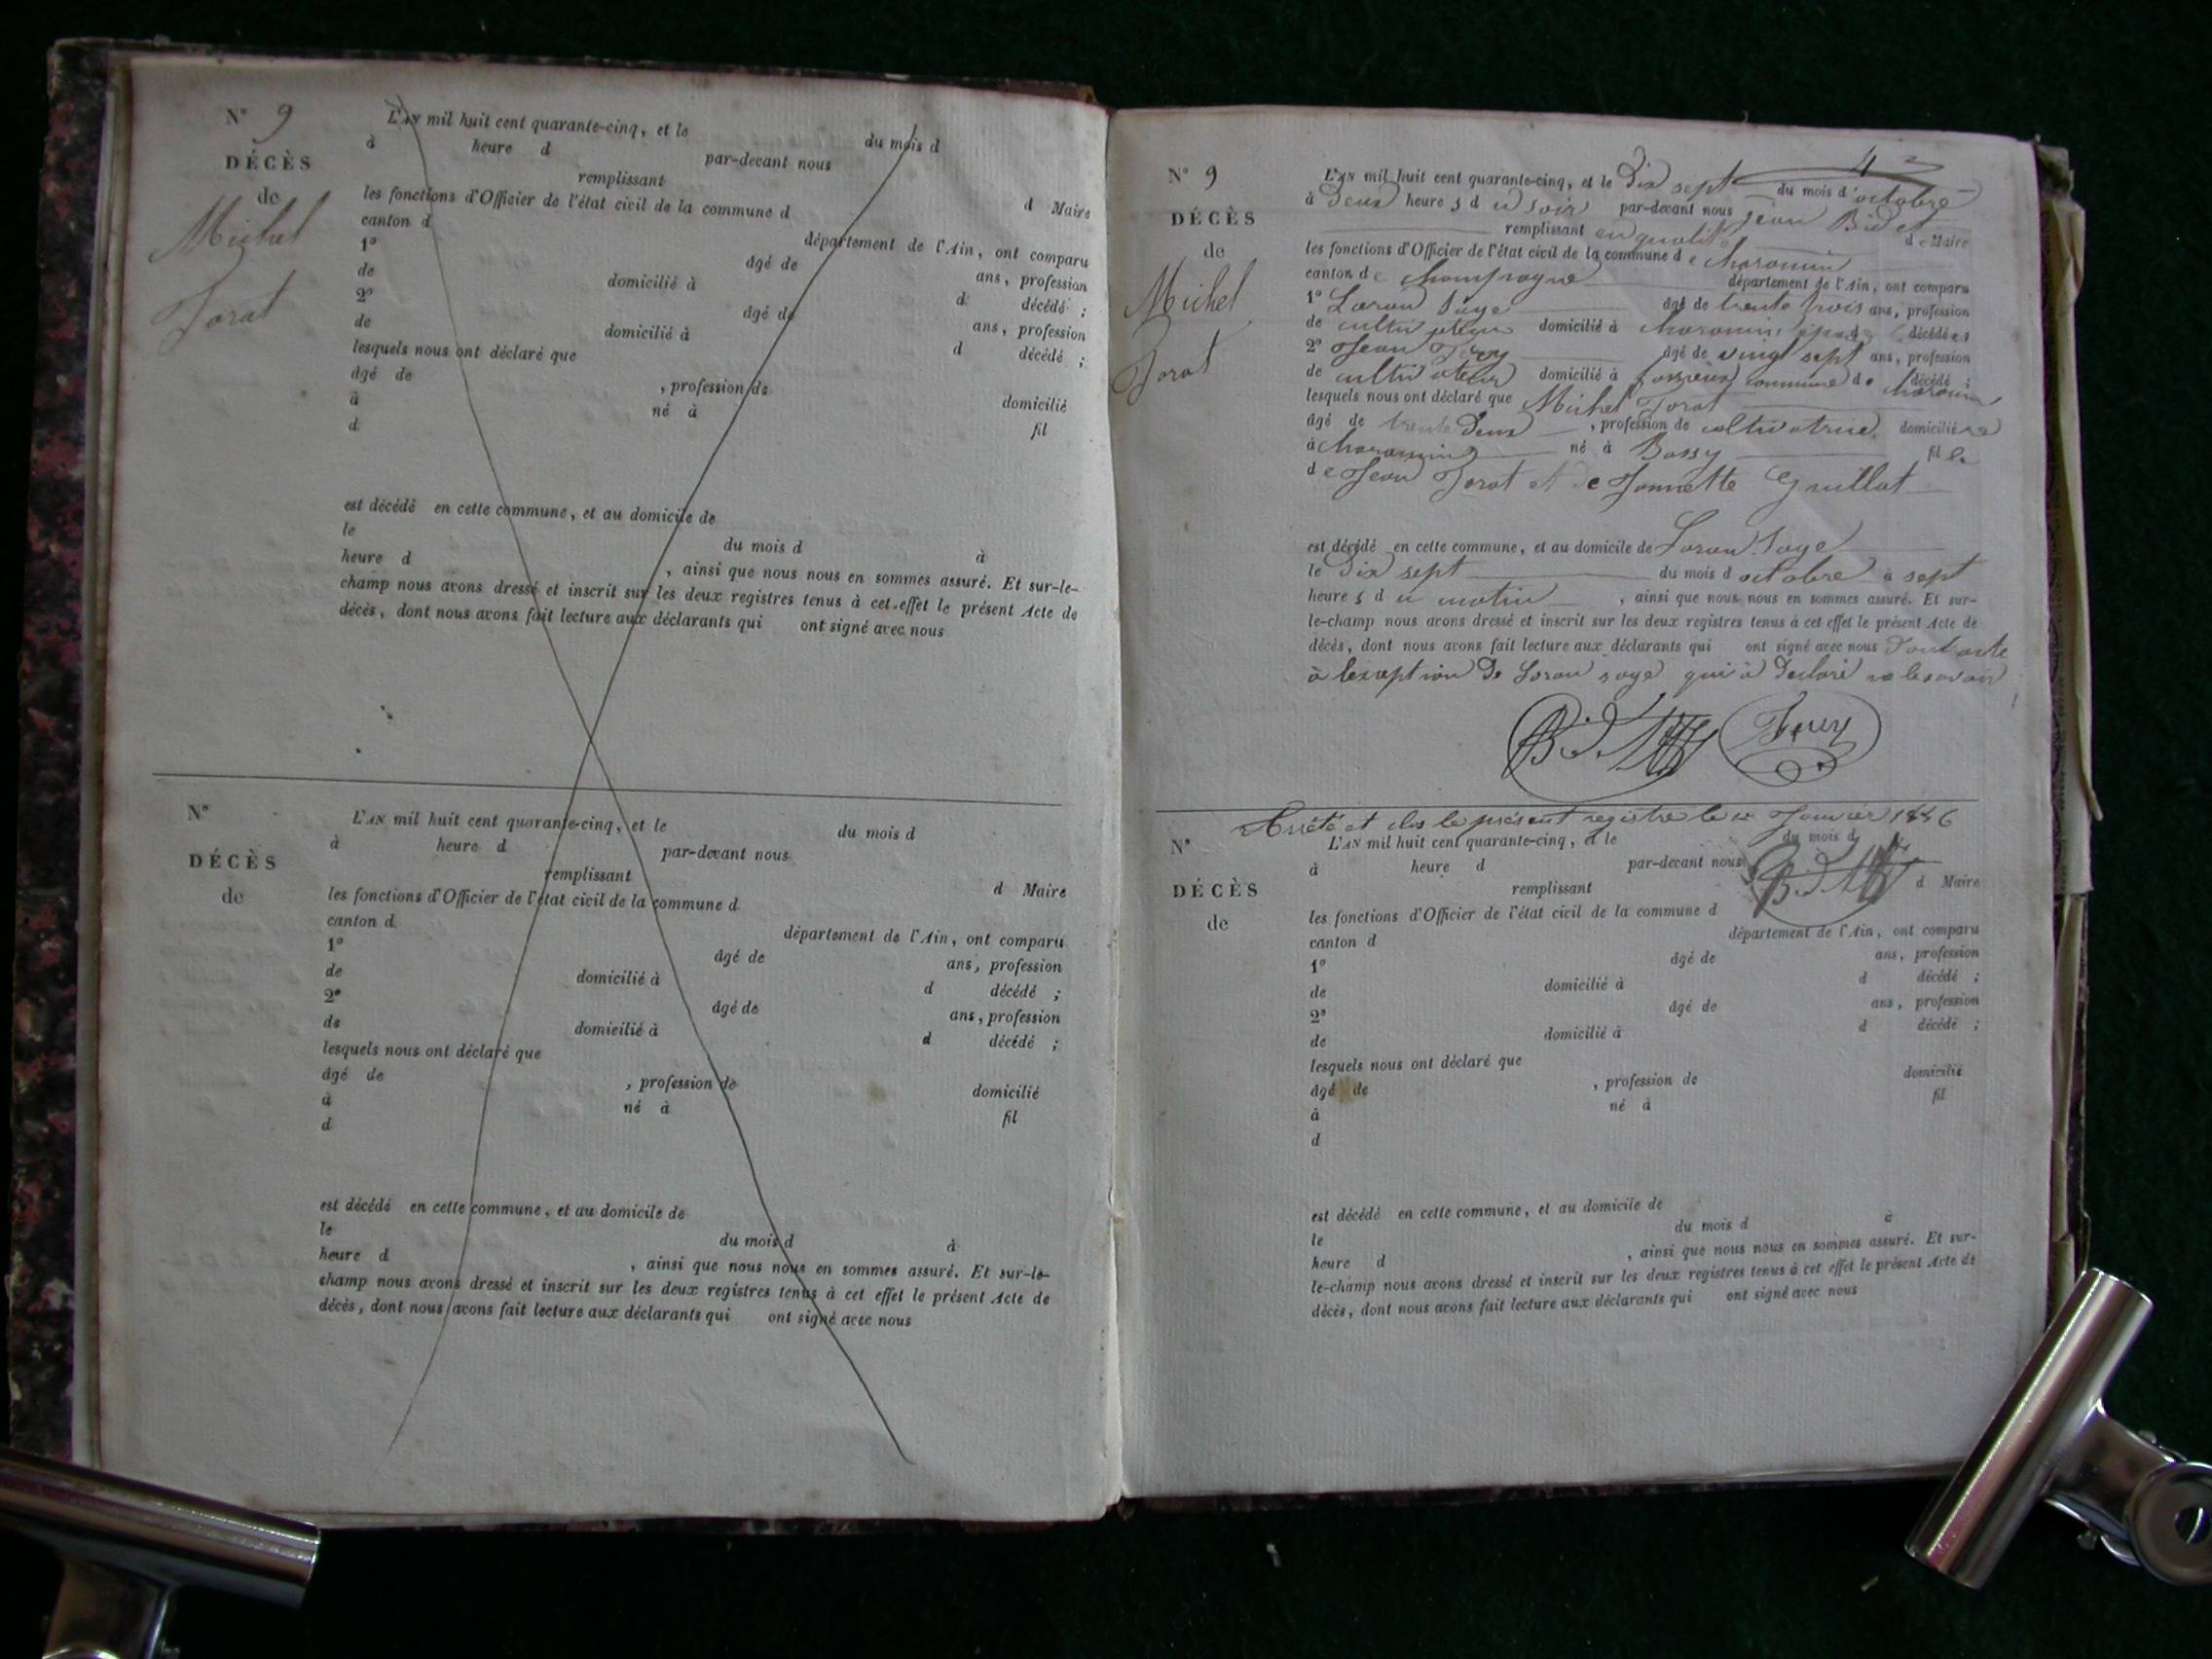 N° 9
DÉCÈS
de
Michel
Torat
L'AN mil huit cent quarante-cinq, et le du mois d
à heure d par-devant nous
remplissant
les fonctions d'Officier de l'état civil de la commune d d Maire
canton d département de l'Ain, ont comparu
1° âgé de ans, profession
de domicilié à d décédé ;
2° âgé de ans, profession
de domicilié à d décédé ;
lesquels nous ont déclaré que
âgé de , profession de domicilié
à né à fil
d
est décédé en cette commune, et au domicile de
le du mois d à
heure d , ainsi que nous nous en sommes assuré. Et sur-le-
champ nous avons dressé et inscrit sur les deux registres tenus à cet effet le présent Acte de
décès, dont nous avons fait lecture aux déclarants qui ont signé avec nous
N°
DÉCÈS
de
L'AN mil huit cent quarante-cinq, et le du mois d
à heure d par-devant nous
remplissant
les fonctions d'Officier de l'état civil de la commune d d Maire
canton d département de l'Ain, ont comparu
1° âgé de ans, profession
de domicilié à d décédé ;
2° âgé de ans, profession
de domicilié à d décédé ;
lesquels nous ont déclaré que
âgé de , profession de domicilié
à né à fil
d
est décédé en cette commune, et au domicile de
le du mois d à
heure d , ainsi que nous nous en sommes assuré. Et sur-le-
champ nous avons dressé et inscrit sur les deux registres tenus à cet effet le présent Acte de
décès, dont nous avons fait lecture aux déclarants qui ont signé avec nous
N° 9
DÉCÈS
de
Michel
Torat
L'AN mil huit cent quarante-cinq, et le dix sept du mois d'octobre
à deux heures du soir par-devant nous jean Bidet
remplissant en qualité de Maire
les fonctions d'Officier de l'état civil de la commune de
canton de Champagne département de l'Ain, ont comparu
1° Loran Saye âgé de trente trois ans, profession
de cultivateur domicilié à décédée
2° Jean Fery âgé de vingt sept ans, profession
de cultivateur domicilié à commune de décédé ;
lesquels nous ont déclaré que Michel Torat
âgé de trente deux , profession de cultivatrice domiciliée
à né à Bossy fille
de Jean Torat et de Jannette Guillot
est décédé en cette commune, et au domicile de Loran Saye
le dix sept du mois d octobre à sept
heures du matin , ainsi que nous nous en sommes assuré. Et sur-
le-champ nous avons dressé et inscrit sur les deux registres tenus à cet effet le présent Acte de
décès, dont nous avons fait lecture aux déclarants qui ont signé avec nous Dont acte
à lexseption de Loran saye qui à declaré ne le savoir
Fery
Arrêté et clos le présent registre le 1er Janvier 1846
N°
DÉCÈS
de
L'AN mil huit cent quarante-cinq, et le du mois d
à heure d par-devant nous
remplissant d Maire
les fonctions d'Officier de l'état civil de la commune d
canton d département de l'Ain, ont comparu
1° âgé de ans, profession
de domicilié à d décédé ;
2° âgé de ans, profession
de domicilié à d décédé ;
lesquels nous ont déclaré que
âgé de , profession de domicilié
à né à fil
d
est décédé en cette commune, et au domicile de
le du mois d à
heure d , ainsi que nous nous en sommes assuré. Et sur-
le-champ nous avons dressé et inscrit sur les deux registres tenus à cet effet le présent Acte de
décès, dont nous avons fait lecture aux déclarants qui ont signé avec nous